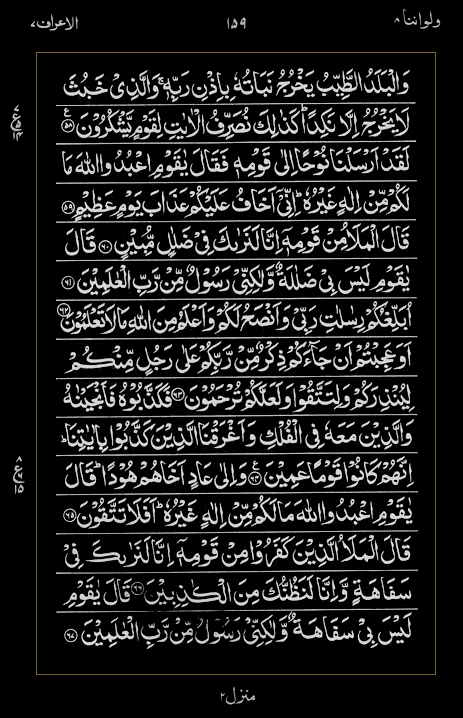 ولواننا ۸
۱۵۹
الاعراف ۷
وَالْبَلَدُ الطَّیِّبُ یَخْرُجُ نَبَاتُهٗ بِاِذْنِ رَبِّهٖ ۚ وَالَّذِیْ خَبُثَ
لَا یَخْرُجُ اِلَّا نَكِدًا ؕ كَذٰلِكَ نُصَرِّفُ الْاٰیٰتِ لِقَوْمٍ یَّشْكُرُوْنَ ﴿۵۸﴾
لَقَدْ اَرْسَلْنَا نُوْحًا اِلٰی قَوْمِهٖ فَقَالَ یٰقَوْمِ اعْبُدُوا اللّٰهَ مَا
لَكُمْ مِّنْ اِلٰهٍ غَیْرُهٗ ؕ اِنِّیْۤ اَخَافُ عَلَیْكُمْ عَذَابَ یَوْمٍ عَظِیْمٍ ﴿۵۹﴾
قَالَ الْمَلَاُ مِنْ قَوْمِهٖۤ اِنَّا لَنَرٰىكَ فِیْ ضَلٰلٍ مُّبِیْنٍ ﴿۶۰﴾ قَالَ
یٰقَوْمِ لَیْسَ بِیْ ضَلٰلَةٌ وَّلٰكِنِّیْ رَسُوْلٌ مِّنْ رَّبِّ الْعٰلَمِیْنَ ﴿۶۱﴾
اُبَلِّغُكُمْ رِسٰلٰتِ رَبِّیْ وَاَنْصَحُ لَكُمْ وَاَعْلَمُ مِنَ اللّٰهِ مَا لَا تَعْلَمُوْنَ ﴿۶۲﴾
اَوَعَجِبْتُمْ اَنْ جَآءَكُمْ ذِكْرٌ مِّنْ رَّبِّكُمْ عَلٰی رَجُلٍ مِّنْكُمْ
لِیُنْذِرَكُمْ وَلِتَتَّقُوْا وَلَعَلَّكُمْ تُرْحَمُوْنَ ﴿۶۳﴾ فَكَذَّبُوْهُ فَاَنْجَیْنٰهُ
وَالَّذِیْنَ مَعَهٗ فِی الْفُلْكِ وَاَغْرَقْنَا الَّذِیْنَ كَذَّبُوْا بِاٰیٰتِنَا ؕ
اِنَّهُمْ كَانُوْا قَوْمًا عَمِیْنَ ﴿۶۴﴾ وَاِلٰی عَادٍ اَخَاهُمْ هُوْدًا ؕ قَالَ
یٰقَوْمِ اعْبُدُوا اللّٰهَ مَا لَكُمْ مِّنْ اِلٰهٍ غَیْرُهٗ ؕ اَفَلَا تَتَّقُوْنَ ﴿۶۵﴾
قَالَ الْمَلَاُ الَّذِیْنَ كَفَرُوْا مِنْ قَوْمِهٖۤ اِنَّا لَنَرٰىكَ فِیْ
سَفَاهَةٍ وَّاِنَّا لَنَظُنُّكَ مِنَ الْكٰذِبِیْنَ ﴿۶۶﴾ قَالَ یٰقَوْمِ
لَیْسَ بِیْ سَفَاهَةٌ وَّلٰكِنِّیْ رَسُوْلٌ مِّنْ رَّبِّ الْعٰلَمِیْنَ ﴿۶۷﴾
منزل ۲